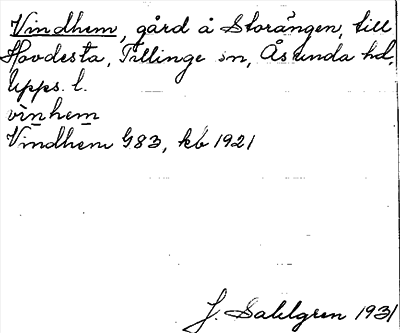 Vindhem, gård å Storängen, till
Hovdesta, Tillinge sn, Åsunda hd,
Upps. l.
vinhem
Vindhem 983, kb 1921
J. Sahlgren 1931